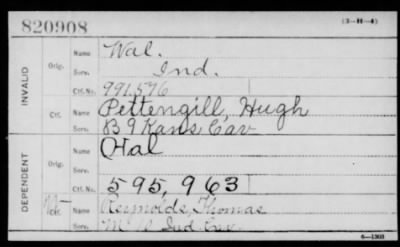 820908
(3-H-4)
INVALID
Orig.
Name
Wal.
Serv.
Ind.
Ctf. No.
991,576
Ctf.
Name
Pettengill, Hugh
Serv.
B 9 Kans Cav
DEPENDENT
Orig.
Name
Wal
Serv.
Ctf. No.
595,963
Name
Reynolds, Thomas
Serv.
Ind Cav
6-1303